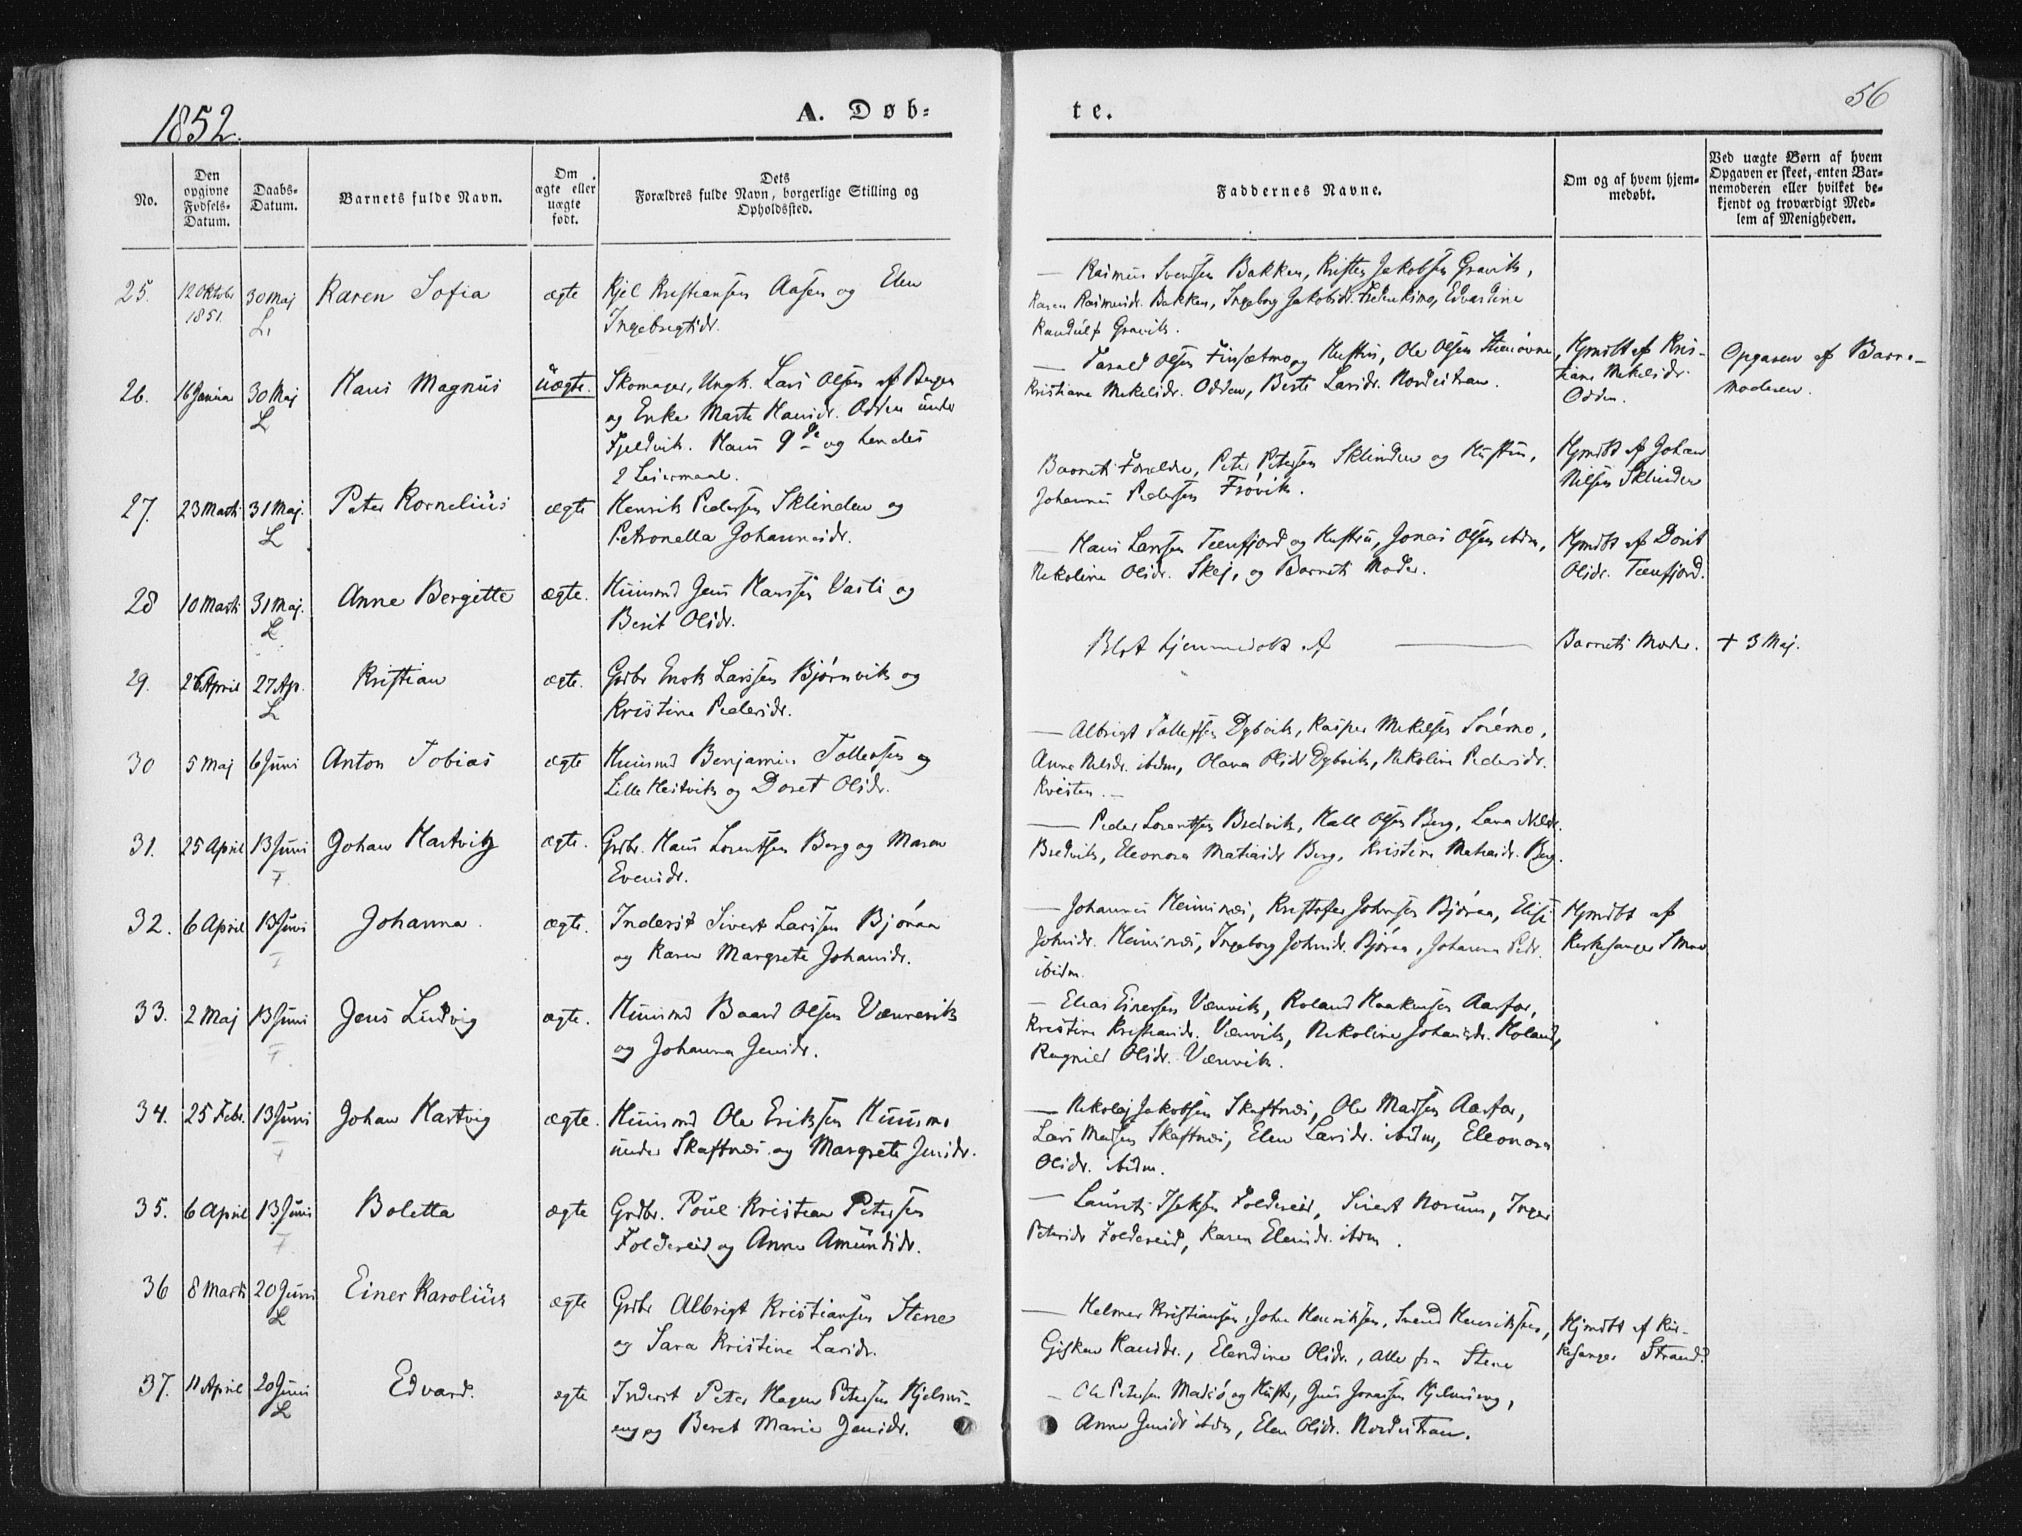 1852.
A. Døb=
te.
56
No.
Den opgivne Fødsels-Datum.
Daabs-Datum.
Barnets fulde Navn.
Om ægte eller uægte født.
Dets Forældres fulde Navn, borgerlige Stilling og Opholdssted.
Faddernes Navne.
Om og af hvem hjem-medøbt.
Ved uægte Børn af hvem Opgaven er skeet, enten Bar-nemoderen eller hvilket be-kjendt og troværdigt Med-lem af Menigheden.
25. 12 Oktobr 1851. 30 Maj L. Karen Sofia ægte Kjel Kristiansen Aasen og Elen
Ingebrigtsdr.
— Rasmus Svendsen Bakken, Kristen Jakobsen Gravik,
Karen Rasmusdr. Bakken, Ingeborg Jakobsdr. Edvardine
Randulf Gravik.
26. 16 Januar 30 Maj L Hans Magnus üægte. Skomager, Ungk. Lars Olsen af Bergen
og Enke Marte Hansdr. Odden under
Fjeldvik. Hans 9de og hendes
2 Leiermaal.
— Tarald Olsen Finsætmo og Hustru, Ole Olsen
Kristiane Mekelsdr. Odden, Berte Larsdr. Nordestran.
Hjmdbt af Kris-
tiane Mekelsdr.
Odden.
Opgaven af Barne-
moderen.
27. 23 Marts 31 Maj. L Peter Kornelius ægte Henrik Pedersen Sklinden og
Petronella Johannesdr.
Barnets Forældre, Peter Petersen Sklinden og Hustru,
Johannes Pedersen Frøvik.
Hjmdbt af Johan
Nilsen Sklinden
28 10 Marts 31 Maj. L Anne Bergitte ægte. Huusmd Jens Hansen Vasli og
Berit Olsdr.
— Hans Larsen Teenfjord og Hustru, Jonas Olsen ibdm,
Nekoline Olsdr. Skej, og Barnets Moder.
Hjmdbt af Dorit
Olsdr. Teenfjord.
29. 26 April 27 Ap. L Kristian ægte. Grdbr Enok Larsen Bjørnvik og
Kristine Pedersdr.
Blot hjemmedøbt af — Barnets Moder. + 3 Maj.
30 5 Maj 6 Juni Anton Tobias ægte Huusmd Benjamin Tollefsen og
Lille Heitvik og Doret Olsdr.
— Albrigt Tollefsen Dybvik, Kasper Mekelsen Sørmo,
Anne Nelsdr. ibidm, Olava Olsdr Dybvik, Nekoline Pedersdr.
Kvisten.—
31. 25 April 13 Juni F. Johan Hartvig ægte. Grdbr. Hans Lorentsen Berg og Maren
Evensdr.
— Peder Lorentsen Bredvik, Hall Olsen Berg, Lava Nilsdr.
Bredvik, Eleonora Matiasdr Berg, Kristine Matiasdr. Berg.
32. 6 April 13 Juni F Johanna. ægte. Inderst Sivert Larsen Bjøraa
og Karen Margrete Johansdr.
— Johannes Heimnæs, Kristofer Johnsen Bjøraa, Elise
Johnsdr. Heimnæs, Ingeborg Johnsdr. Bjøraa, Johanna Pedr.
ibidm.
Hjmdbt af
Kirkesanger
33. 2 Maj 13 Juni F Jens Ludvig ægte. Huusmd Baard Olsen Værnvik
og Johanna Jensdr.
— Elias Einersen Værnvik, Roland Haakensen Aarfor,
Kristine Kristiansdr. Værnvik, Nekoline Johansdr. Holand,
Ragnild Olsdr. Værnvik.
34. 25 Febr. 13 Juni F Johan Hartvig ægte. Huusmd Ole Eriksen Huusmo
under Skaftnæs og Margrete Jensdr.
— Nekolaj Jakobsen Skaftnæs, Ole Madsen Aarfor,
Lars Madsen Skaftnæs, Elen Larsdr. ibidm, Eleonora
Olsdr. ibidm.
35. 6 April 13 Juni F. Boletta ægte Grdbr. Poul Kristian Petersen
Foldereid og Anne Amundsdr.
— Laurits Isaksen Foldereid, Sivert Norum, Inger
Petersdr Foldereid, Karen Elensdr. ibdm.
36 8 Marts 20 Juni L Einer Karolius ægte Grdbr Albrigt Kristiansen Stene
og Sara Kristine Larsdr.
— Helmer Kristiansen, John Henriksen, Svend Henriksen,
Gisken Hansdr., Elendine Olsdr., alle fra Stene
Hjmdbt af Kir-
kesanger Strand.
37. 11 April 20 Juni L Edvard. ægte Inderst Peter Hagen Petersen Hjelms-
eng og Beret Marie Jensdr.
— Ole Petersen Madsø og Hustr, Jens Jonassen Hjelmseng,
Anne Jensdr ibdm, Elen Olsdr. Nordestran.